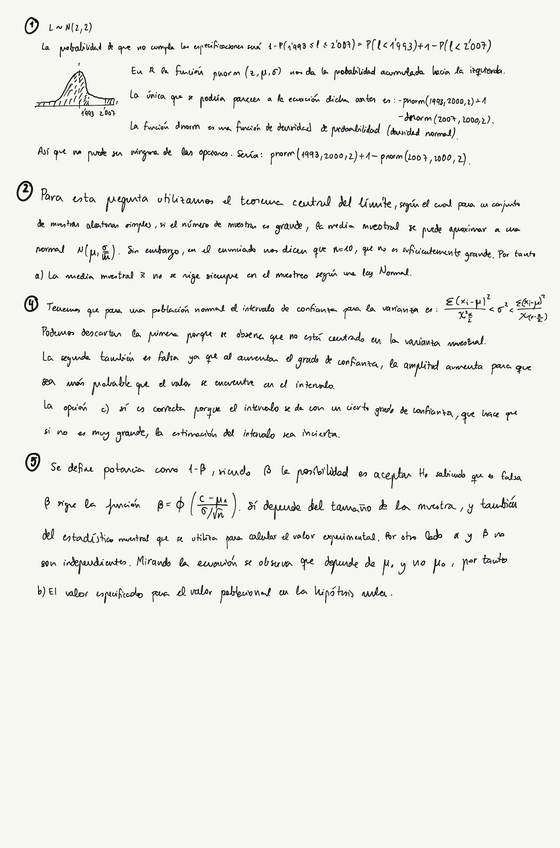 ① L ~ N(2,2)
La probabilidad de que no cumpla las especificaciones será 1-P(1'993 ≤ l ≤ 2'007) = P(l<1'993)+1-P(l<2'007)
En R la función pnorm (z,μ,σ) nos da la probabilidad acumulada hacia la izquierda.
La única que se podría parecer a la ecuación dicha antes es: -pnorm(1993,2000,2)+1
-dnorm(2007,2000,2).
1'993 2'007
La función dnorm es una función de densidad de probabilidad (densidad normal).
Así que no puede ser ninguna de las opciones. Sería: pnorm(1993,2000,2)+1-pnorm(2007,2000,2).
② Para esta pregunta utilizamos el teorema central del límite, según el cual para un conjunto
de muestras aleatorias simples, si el número de muestras es grande, la media muestral se puede aproximar a una
normal N(μ, σ/√n). Sin embargo, en el enunciado nos dicen que n=10, que no es suficientemente grande. Por tanto
a) La media muestral x̄ no se rige siempre en el muestreo según una ley Normal.
④ Tenemos que para una población normal el intervalo de confianza para la varianza es: Σ(xi-μ)²/χ²α/2 < σ² < Σ(xi-μ)²/χ(1-α/2)
Podemos descartar la primera porque se observa que no está centrado en la varianza muestral.
La segunda también es falsa ya que al aumentar el grado de confianza, la amplitud aumenta para que
sea más probable que el valor se encuentre en el intervalo.
La opción c) sí es correcta porque el intervalo se da con un cierto grado de confianza, que hace que
si no es muy grande, la estimación del intervalo sea incierta.
⑤ Se define potencia como 1-β, siendo β la posibilidad es aceptar H₀ sabiendo que es falsa
β sigue la función β = ϕ((c-μ₁)/(σ/√n)). Sí depende del tamaño de la muestra, y también
del estadístico muestral que se utiliza para calcular el valor experimental. Por otro lado α y β no
son independientes. Mirando la ecuación se observa que depende de μ₁ y no μ₀, por tanto
b) El valor especificado para el valor poblacional en la hipótesis nula.